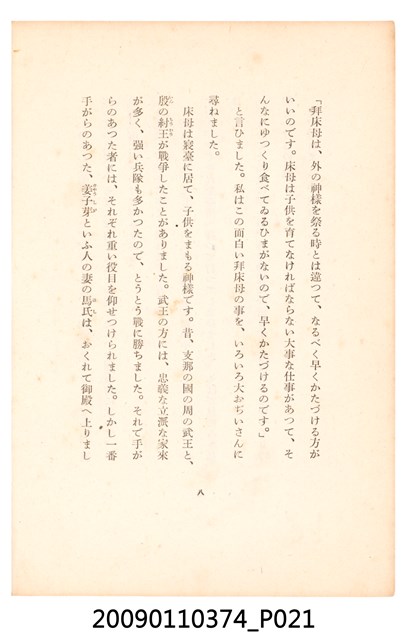 「拜床母は、外の神樣を祭る時とは違つて、なるべく早くかたづける方が
いいのです。床母は子供を育てなければならない大事な仕事があつて、そ
んなにゆつくり食べてゐるひまがないので、早くかたづけるのです。」
と言ひました。私はこの面白い拜床母の事を、いろいろ大おぢいさんに
尋ねました。
床母は寢臺に居て、子供をまもる神樣です。昔、支那の國の周の武王と、
殷の紂王が戰爭したことがありました。武王の方には、忠義な立派な家來
が多く、强い兵隊も多かつたので、とうとう戰に勝ちました。それで手が
らのあつた者には、それぞれ重い役目を仰せつけられました。しかし一番
手がらのあつた、姜子牙といふ人の妻の馬氏は、おくれて御殿へ上りまし
八
20090110374_P021